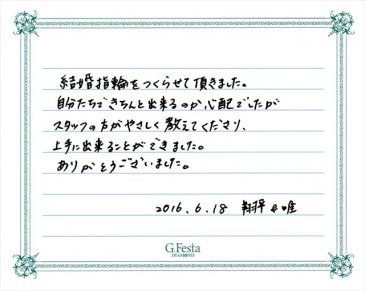 結婚指輪をつくらせて頂きました。
自分たちできちんと出来るのか心配でしたが
スタッフの方がやさしく教えてくださり、
上手に出来ることができました。
ありがとうございました。
2016.6.18 翔平&唯
G.Festa
DIAMOND